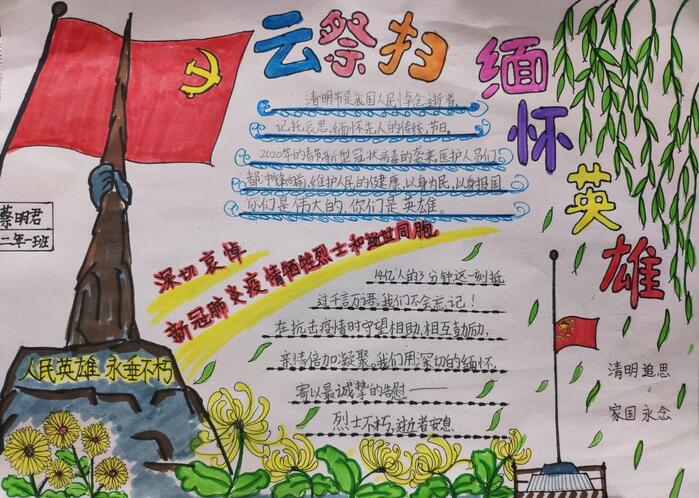 云祭扫
缅怀英雄
清明节是我国人民悼念逝者,
记托哀思,缅怀先人的传统节日。
2020年的春节新型冠状病毒的袭来医护人员们
都冲锋向前,维护人民的健康,以身为民,以身报国
你们是伟大的,你们是英雄。
蔡明君
二年一班
深切哀悼
新冠肺炎疫情牺牲烈士和逝世同胞
14亿人的3分钟这一刻抵
过千言万语,我们不会忘记!
在抗击疫情时守望相助,相互鼓励,
亲情倍加凝聚。我们用深切的缅怀,
寄以最诚挚的告慰——
烈士不朽,逝者安息
人民英雄 永垂不朽
清明追思
家国永念